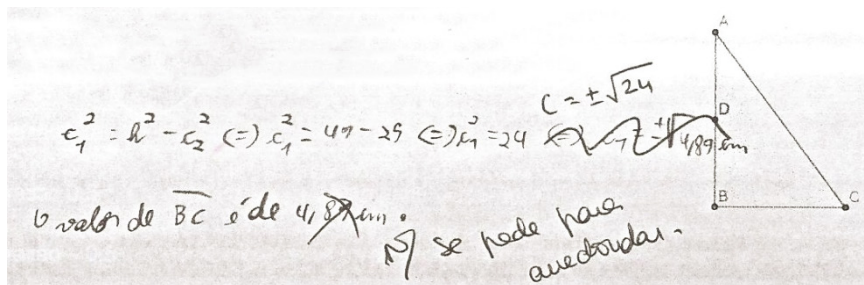 C = ±√24
c₁² = h² - c₂² (=) c₁² = 49 - 25 (=) c₁² = 24 (=) c₁ = ±√ 4,89 cm
O valor de BC é de 4,87 cm.
Ñ se pede para
arredondar.
A
D
B
C